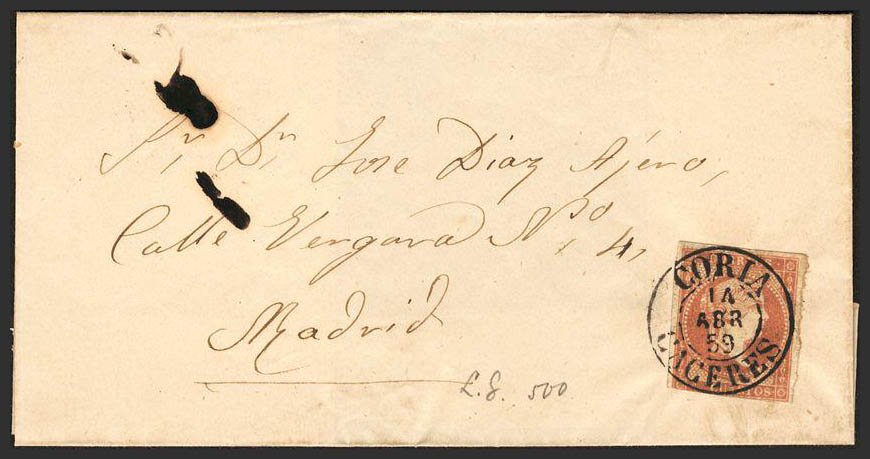 Sr. Dn. Jose Diaz Ajero,
Calle Vergara Nº. 4,
Madrid
CORIA
ABR
59
CACERES
500